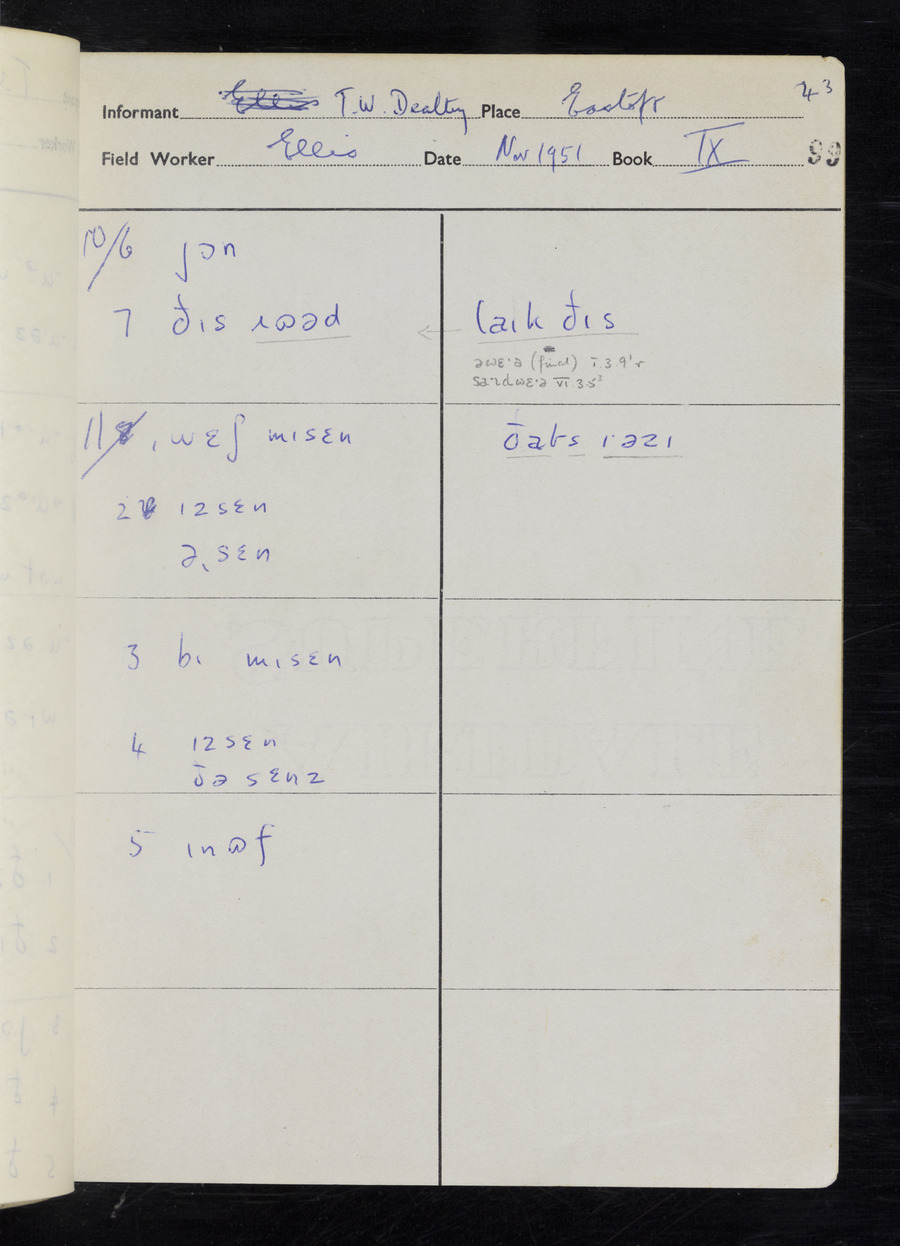 43
Informant T.W. Dealtry Place Eastoft
Field Worker Ellis Date Nov 1951 Book IX 99
10/6 jən
7 ðɪs ɹɷəd ← laɪk ðɪs
(final)
11/ 1 wɛʃ mɪsɛn ðats ɪəzɪ
2 ɪzsɛn
ə sɛn
3 bɪ mɪsɛn
4 ɪzsɛn
ðə sɛnz
5 ɪnɷf